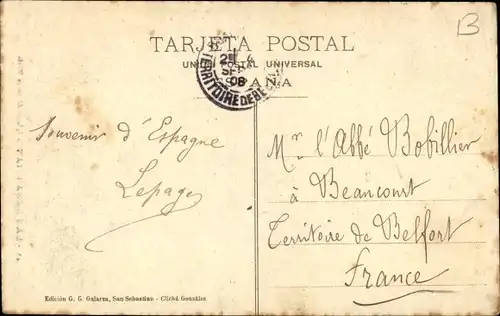 B
TARJETA POSTAL
UNIÓN POSTAL UNIVERSAL
ESPAÑA
SEPT
08
TERRITOIRE DE BE
Souvenir d'Espagne
Lepage
Mr l'Abbé Bobillier
à Beaucourt
Territoire de Belfort
France
Edición G. G. Galarza, San Sebastian - Cliché González